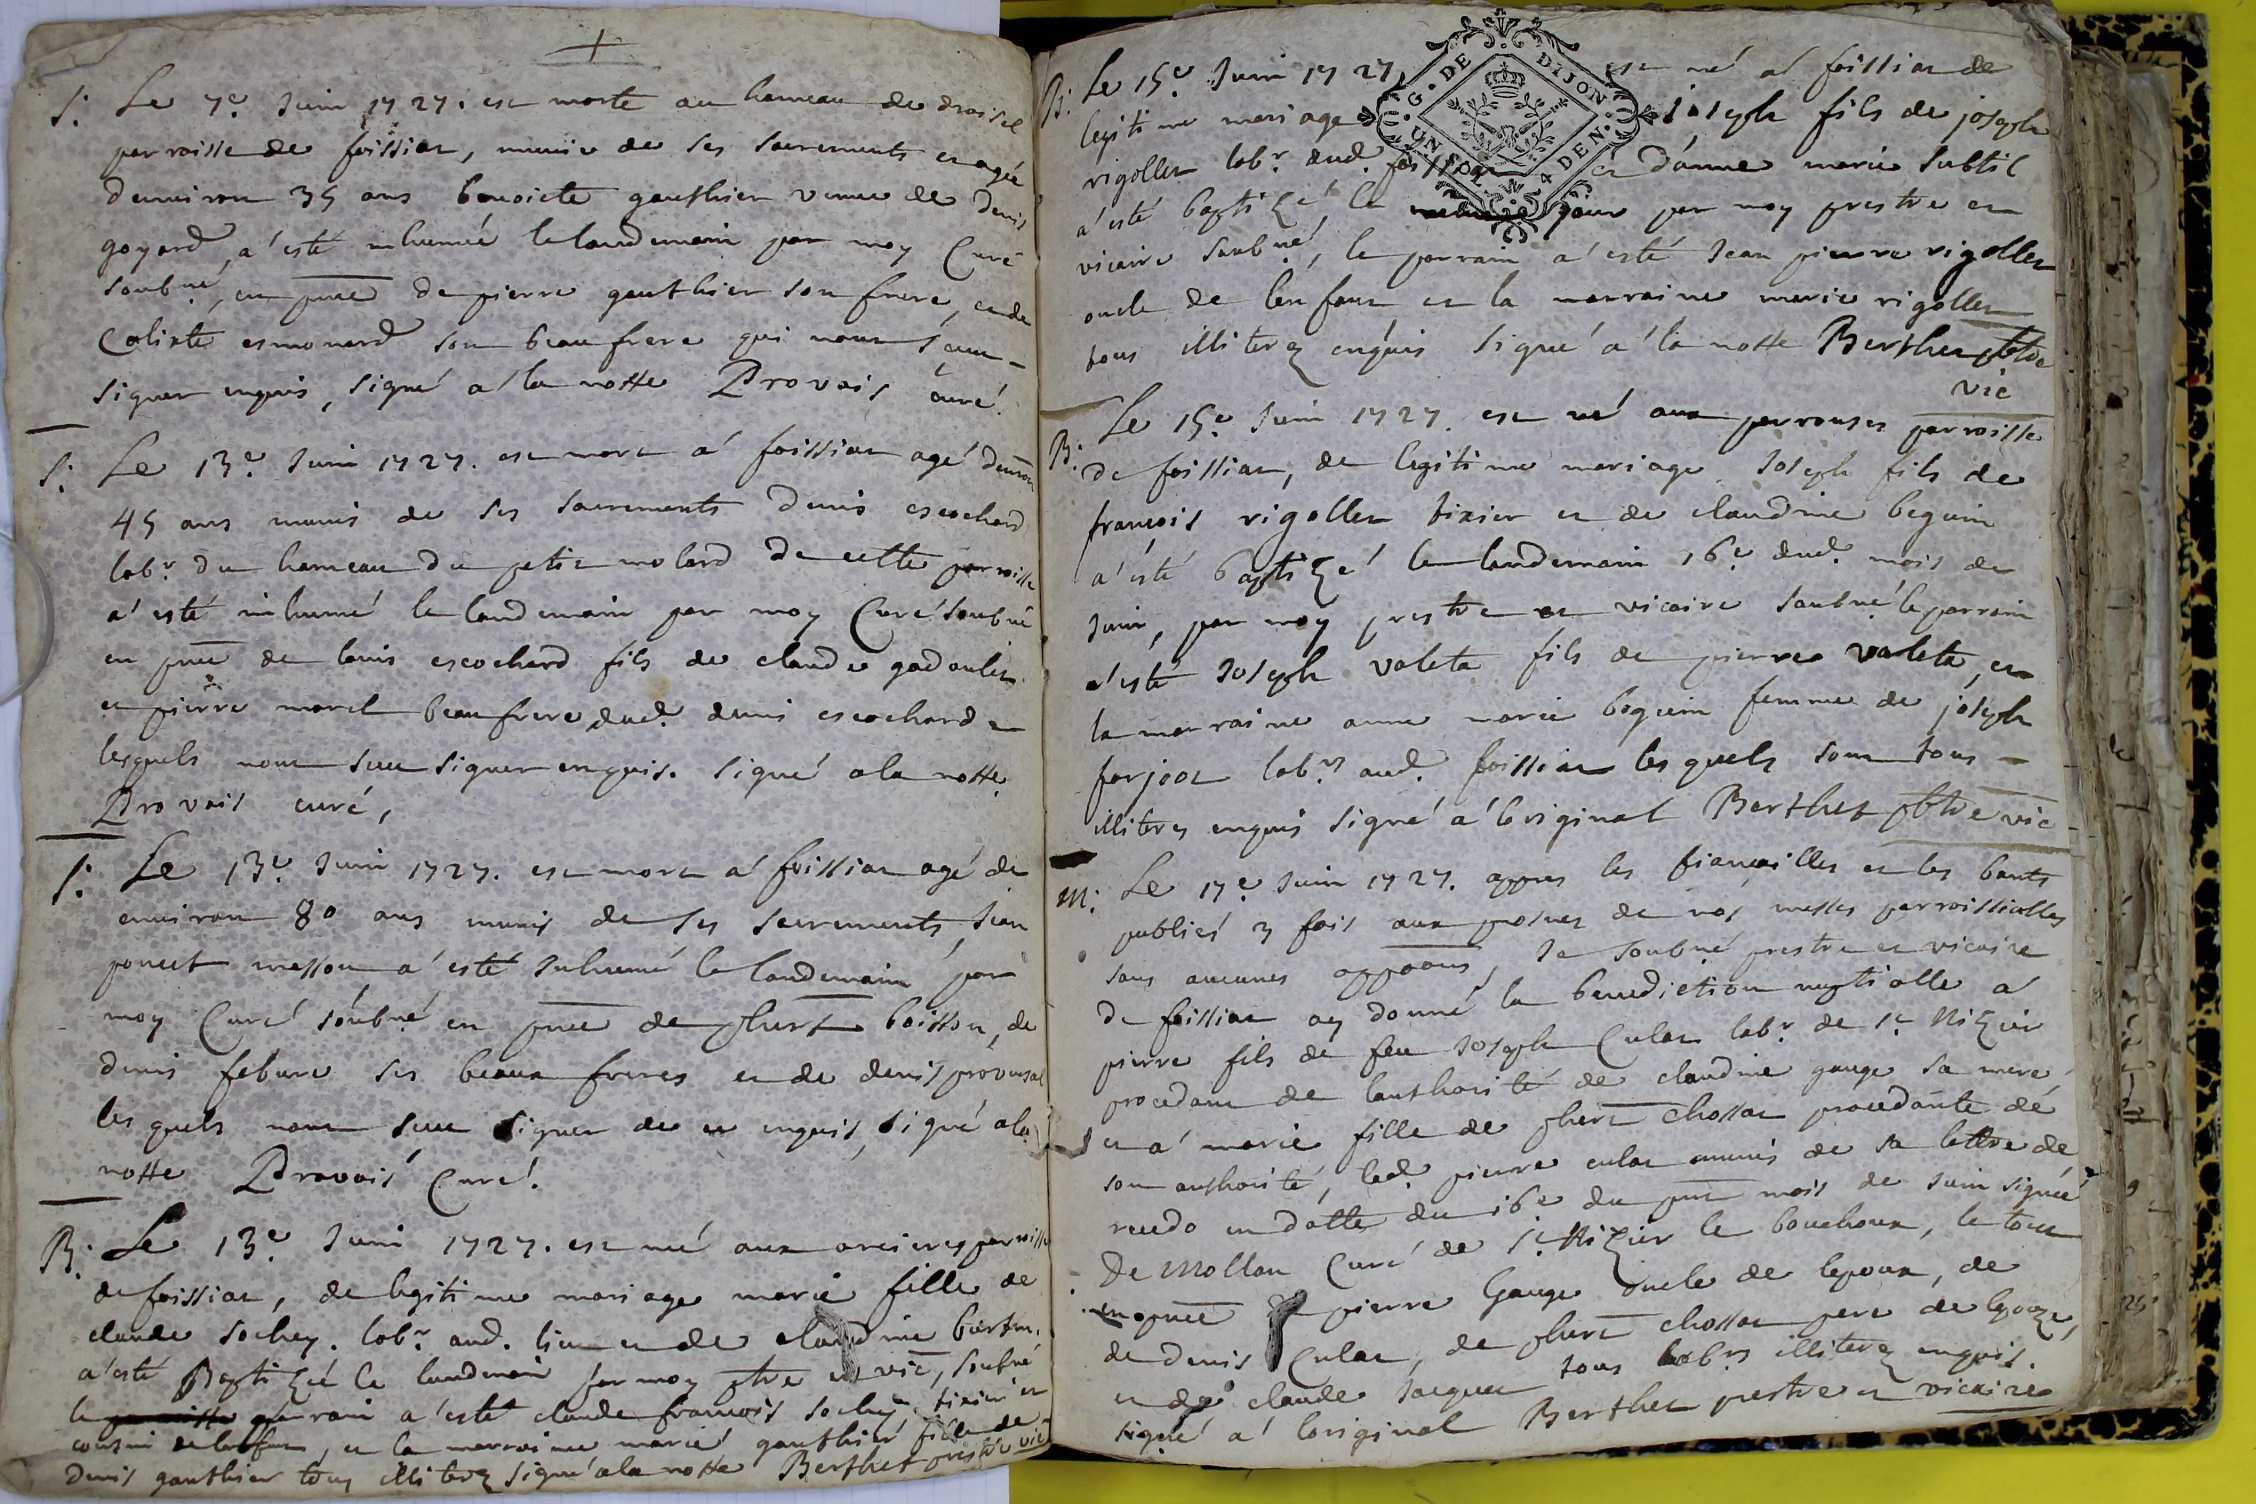 S: Le 7e. Juin 1727. est morte au hameau de
parroisse de foissiat, munie de ses sacrements et agée
denuiron 35 ans benoiete gauthier venue de denis
goyard, a'esté inhumée le landemain par moy Curé
soubné, en pnce de pierre gauthier son frere, et de
Calixte esmonard son beaufrere qui nont sceu -
signer enquis, signé a' la notte Provais curé.
S: Le 13e. Juin 1727. est mort a' foissiat agé denuiron
45 ans munis de ses sacrements denis escochard
labr. du hameau du petit molard de cette parroisse
a'esté inhumé le landemain par moy Curé soubné
en pnce de louis escochard fils de claude
et pierre morel beaufrere dud. denis escochard
lesquels nont sceu signer enquis. signé a la notte
Provais curé,
S: Le 13e. Juin 1727. est mort a' foissiat agé de
enuiron 80 ans munis de ses sacrements, Jean
poncet masson a'esté Inhumé le landemain par
moy Curé soubné en pnce de phert boisson, de
denis febure ses beaux freres et de denis prouensal
les quels nont sceu signer de ce enquis, signé a la
notte Provais Curé.
B: Le 13e. Juin 1727. est né aux parroisse
de foissiat, de legitime mariage marie fille de
claude sochey. labr. aud. lieu et de claudine
a'esté Baptizée le landemain par moy ptre et vic, soubné
le parrain a'esté claude francois sochey tixier et
cousin de lenfant, et la marraine marie gauthier fille de
denis gauthier tous illiterez signé a la notte Berthet prestre vic
B: Le 15e. Juin 1727 est né a' foissiat de
G. DE DIJON
UN SOL 4 DEN.
legitime mariage Joseph fils de joseph
rigollet labr. dud. foissiat et danne marie subtil
a'esté baptizé le jour par moy prestre et
vicaire soubné, le parrain a'esté Jean pierre rigollet
oncle de lenfant et la marraine marie rigollet
tous illiterez enquis signé a' la notte Berthet ptre
vic
B: Le 15e. Juin 1727. est né aux parrouses parroisse
de foissiat, de legitime mariage Joseph fils de
françois rigollet tixier et de claudine beguin
a'esté baptizé le landemain 16e. dud. mois de
Juin, par moy prestre et vicaire soubné le parrain
a'esté Joseph valete fils de pierre valete, et
la marraine anne marie beguin femme de joseph
forjoat labrs. aud. foissiat les quels sont tous -
illiteres enquis signé a' loriginal Berthet ptre vic
M: Le 17e. Juin 1727. appres les fiançailles et les bants
publiés 3 fois aux prosnes de nos messes parroissialles
sans aucunes , Je soubné prestre et vicaire
de foissiat ay donné la benediction nuptialle a'
pierre fils de feu Joseph Culat labr. de St. Nizier
procedant de lauthorité de claudine gauge sa mere,
et a' marie fille de phert chossat procedante de
son authorité, led. pierre culat munis de sa lettre de
recedo en datte du 16e du pnt mois de Juin signée
De Mollan Curé de St. Nizier le bouchoux, le tout
en pnce de pierre Gauge oncle de lepoux, de
de denis Culat, de phert chossat pere de lepouze,
et de claude Jacquet tous labrs illiterez enquis.
signé a' loriginal Berthet prestre et vicaire